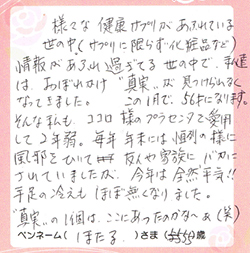 様々な健康サプリがあふれている
世の中(サプリに限らず・化粧品など)
情報があふれ過ぎてる世の中で、私達
は、おぼれかけ"真実"が見つけられなく
なってきました。この1月で、56才になります。
そんな私も、ココロ様のプラセンタを愛用
して2年弱。毎年年末には恒例の様に
風邪をひいて友人や家族にバカに
されていましたが、今年は全然平気!!
手足の冷えもほぼ無くなりました。
"真実"の1個は、ここにあったのかなぁ(笑)
ペンネーム(ほたる)さま( )歳